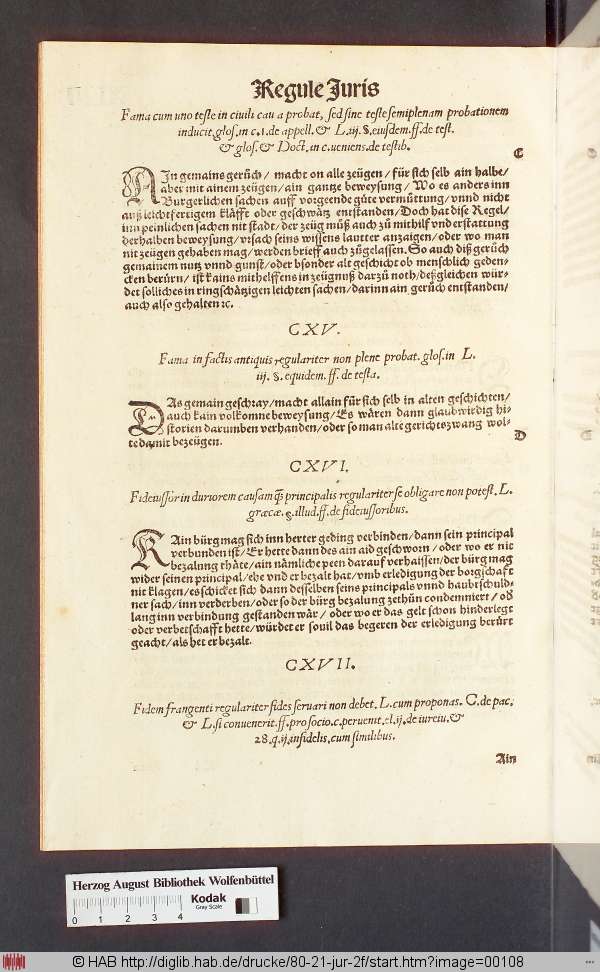 Regule Juris
Fama cum uno teste in ciuili cau a probat, sed sine teste semiplenam probationem
inducit. glos. in c. 1. de appell. & L. iij. §. eiusdem. ff. de test.
& glos. & Doct. in c. ueniens. de testib.
C
AIn gemains gerüch / macht on alle zeügen / für sich selb ain halbe /
aber mit ainem zeügen / ain gantze beweysung / Wo es anders inn
Burgerlichen sachen auff vorgeende gůte vermůttung / vnnd nicht
auß leichtfertigem kläfft oder geschwätz entstanden / Doch hat dise Regel /
inn peinlichen sachen nit stadt / der zeüg můß auch zů mithilf vnd erstattung
derhalben beweysung / vrsach seins wissens lautter anzaigen / oder wo man
nit zeügen gehaben mag / werden brieff auch zůgelassen. So auch diß gerüch
gemainem nutz vnnd gunst / oder bsonder alt geschicht ob menschlich geden-
cken berürn / ist kains mithelffens in zeügnuß darzů noth / deßgleichen wür-
det solliches in ringschätzigen leichten sachen / darinn ain gerüch entstanden /
auch also gehalten ꝛc.
CXV.
Fama in factis antiquis regulariter non plene probat. glos. in L.
iij. §. equidem. ff. de testa.
DAs gemain geschray / macht allain für sich selb in alten geschichten /
auch kain volkomne beweysung / Es wären dann glaubwirdig hi-
storien darumben verhanden / oder so man alte gerichtszwang wol-
te damit bezeügen.
D
CXVI.
Fideiussor in duriorem causam q̃; principalis regulariter se obligare non potest. L.
græcæ. §. illud. ff. de fideiussoribus.
KAin bürg mag sich inn herter geding verbinden / dann sein principal
verbunden ist / Er hette dann des ain aid geschworn / oder wo er nit
bezalung thäte / ain nämliche peen darauf verhaissen / der bürg mag
wider seinen principal / ehe vnd er bezalt hat / vmb erledigung der borgschafft
nit klagen / es schicket sich dann desselben seins principals vnnd haubtschuld-
ner sach / inn verderben / oder so der bürg bezalung zethůn condemniert / ob
lang inn verbindung gestanden wär / oder wo er das gelt schon hinderlegt
oder verbetschafft hette / würdet er souil das begeren der erledigung berürt
geacht / als het er bezalt.
CXVII.
Fidem frangenti regulariter fides seruari non debet. L. cum proponas. C. de pac.
& L. si conuenerit. ff. pro socio. c. peruenit. el. ij. de iureiu. &
28. q. ij. infidelis. cum similibus.
Ain
Herzog August Bibliothek Wolfenbüttel
Kodak
Gray Scale
0 1 2 3 4
© HAB http://diglib.hab.de/drucke/80-21-jur-2f/start.htm?image=00108